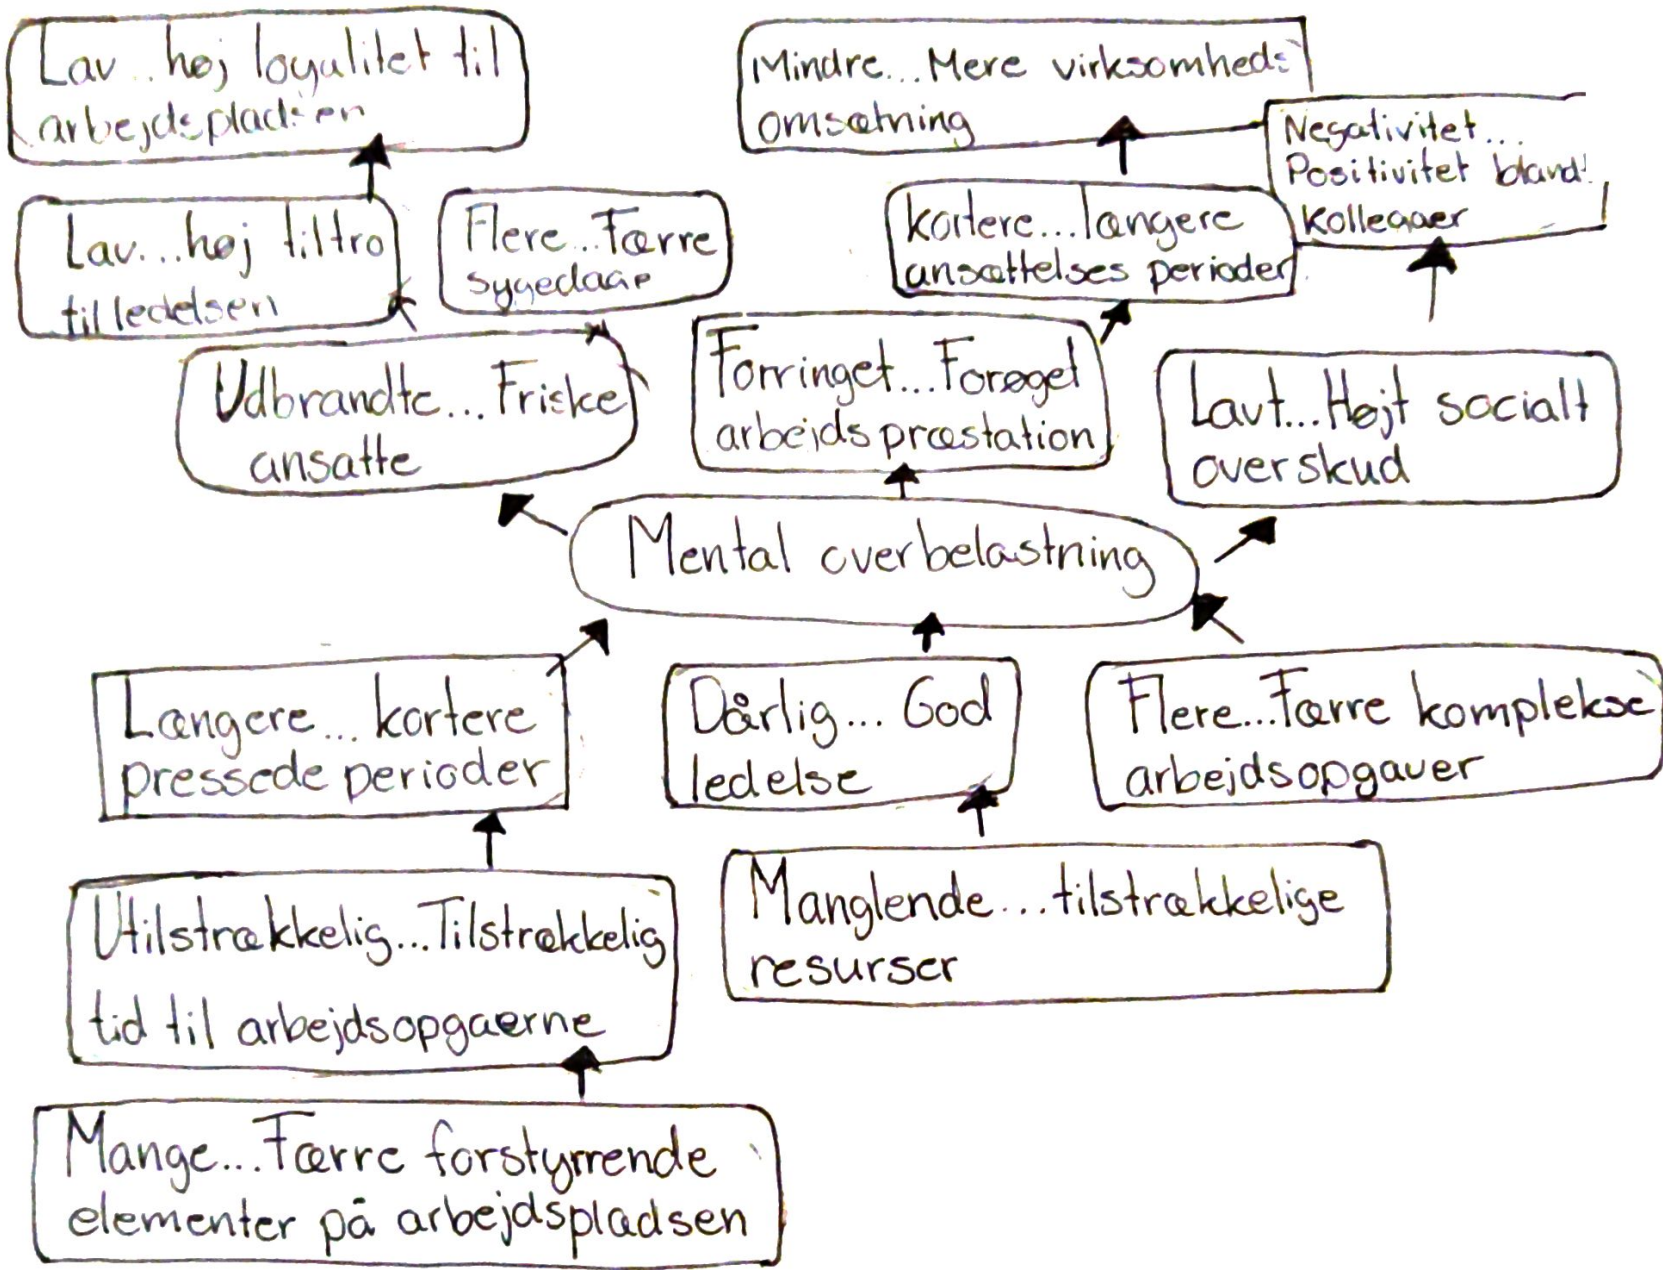 Lav...høj loyalitet til
arbejdspladsen
Mindre...Mere virksomheds
omsætning
Negativitet...
Positivitet blandt
Kollegaer
Lav...høj tiltro
til ledelsen
Flere...Færre
sygedage
kortere...længere
ansættelses perioder
Udbrandte...Friske
ansatte
Forringet...Forøget
arbejds præstation
Lavt...Højt socialt
overskud
Mental overbelastning
Længere...kortere
pressede perioder
Dårlig...God
ledelse
Flere...Færre komplekse
arbejdsopgaver
Utilstrækkelig...Tilstrækkelig
tid til arbejdsopgaerne
Manglende...tilstrækkelige
resurser
Mange...Færre forstyrrende
elementer på arbejdspladsen